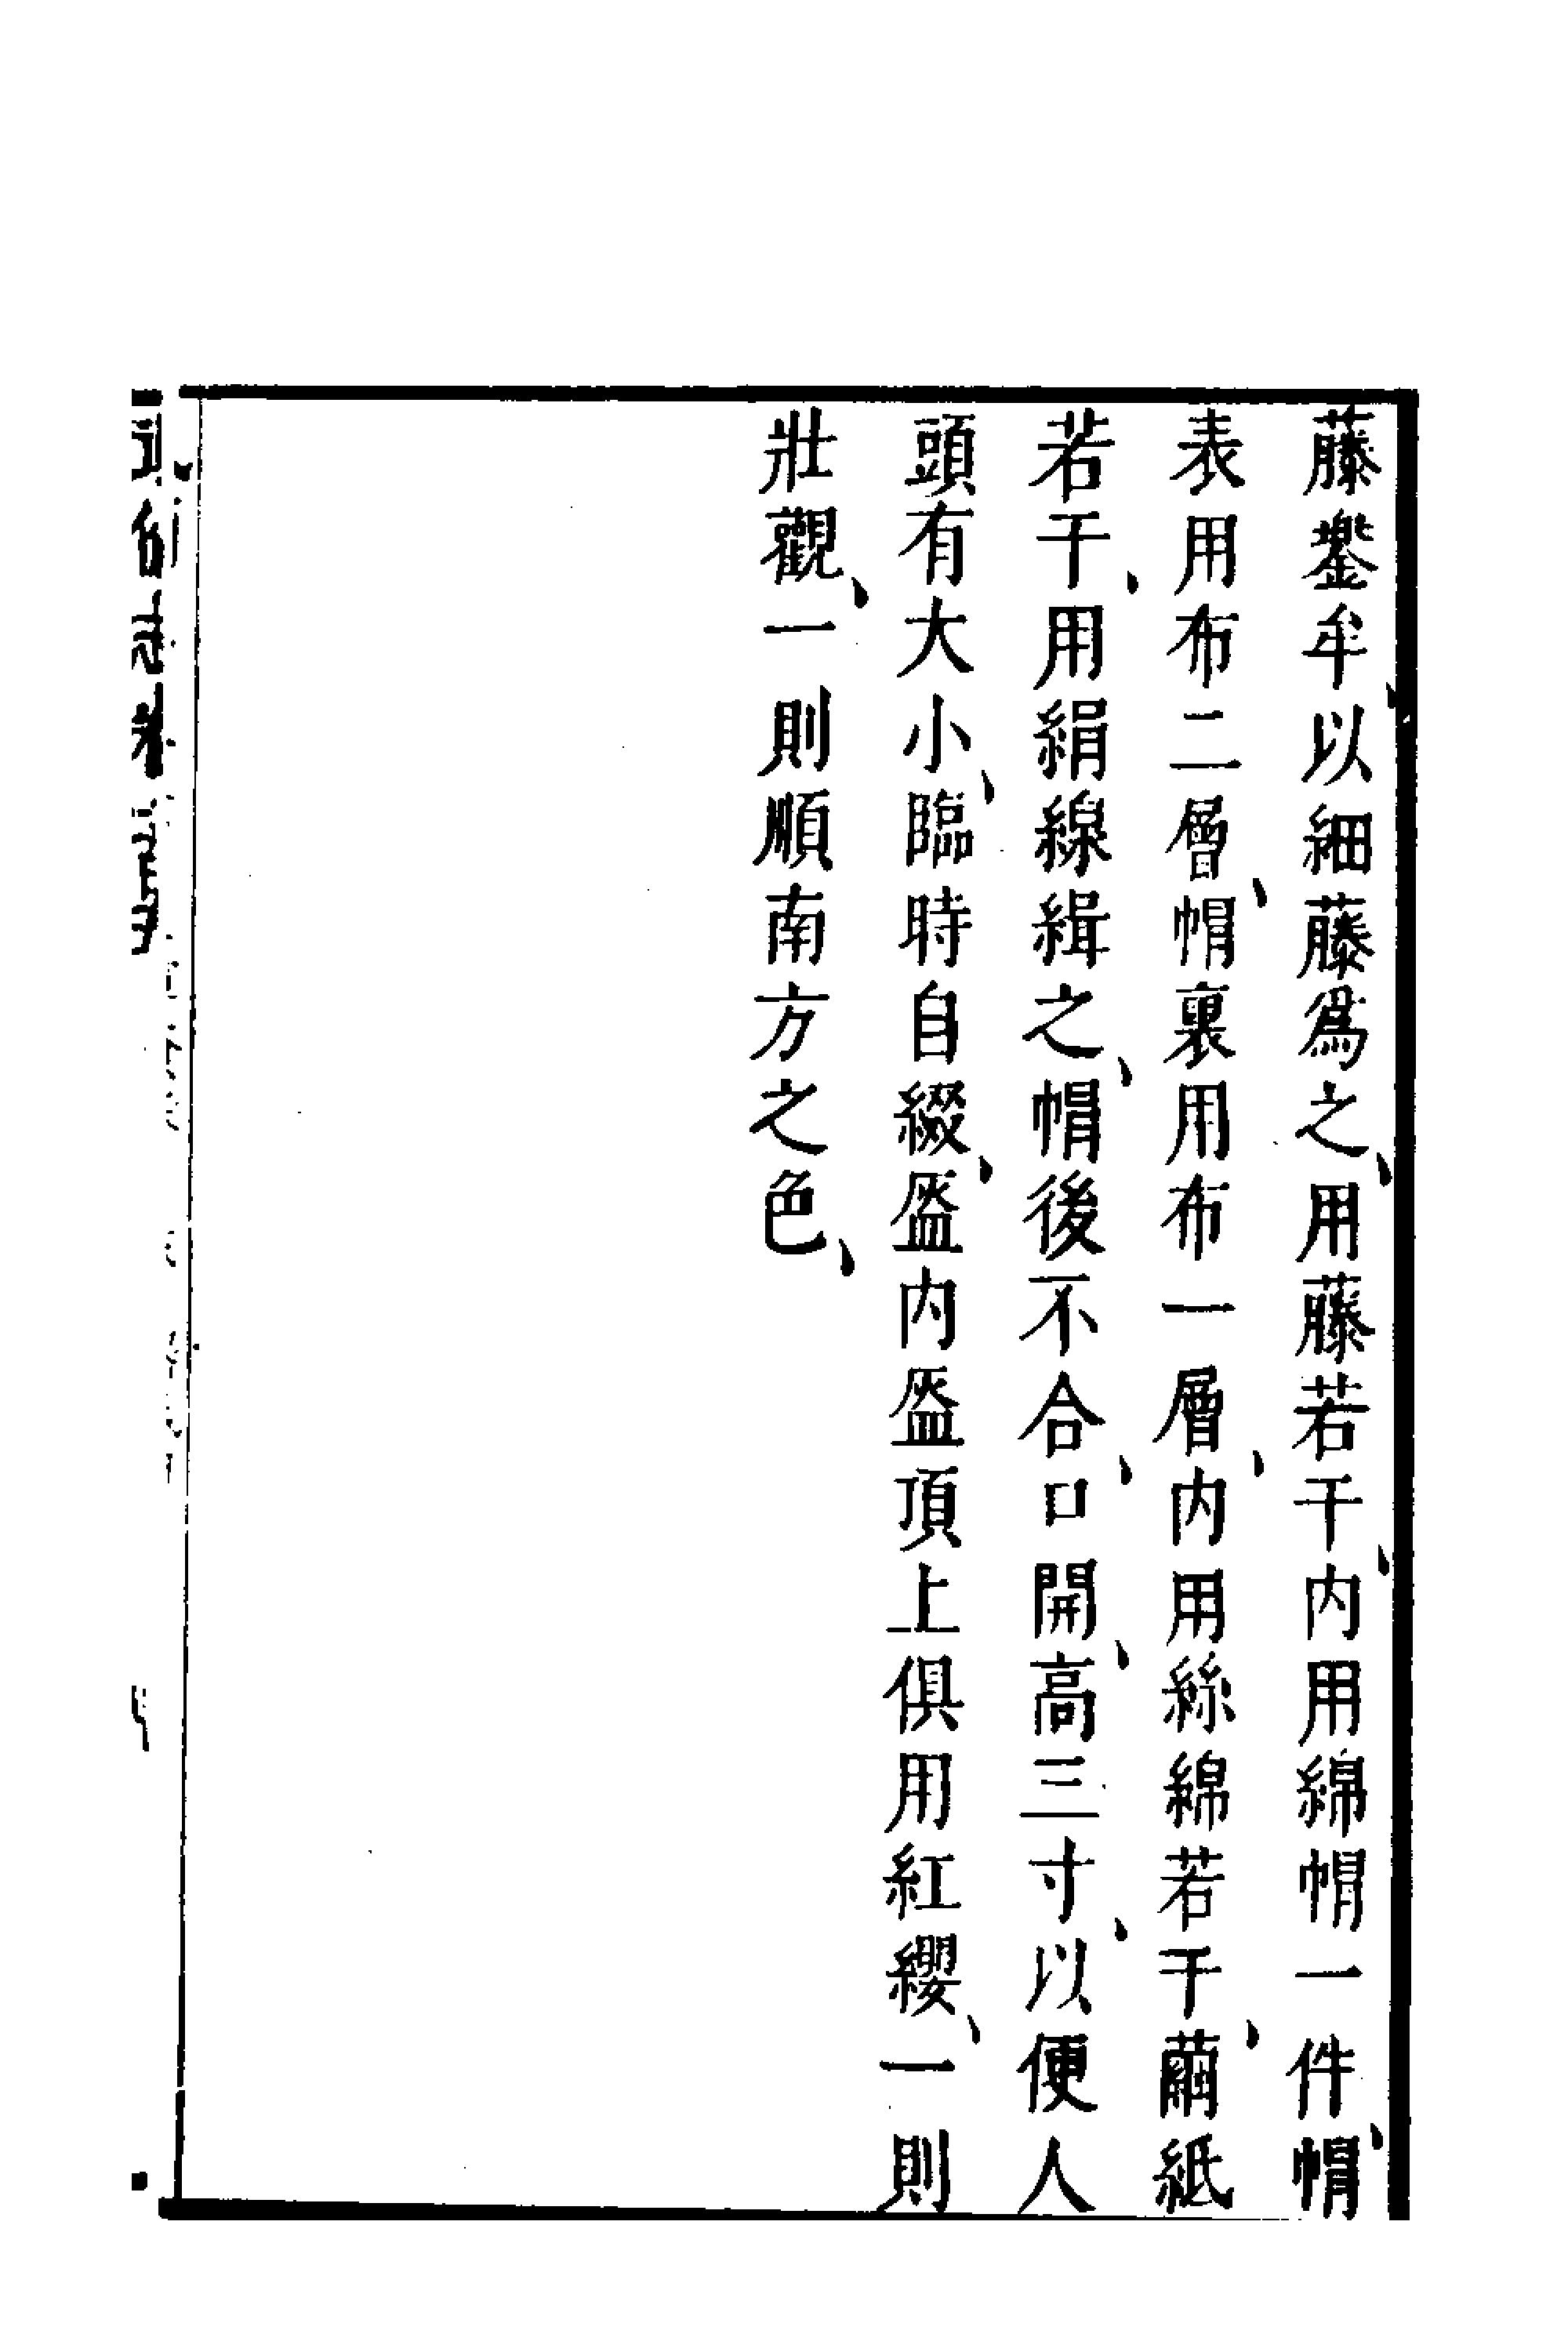 藤鍪牟、以細藤爲之、用藤若干、内用綿帽一件、帽
表用布二層、帽裏用布一層、内用絲綿若干、繭紙
若干、用絹線緝之、帽後不合口、開高三寸、以便人
頭有大小、臨時自綴、盔内盔頂上俱用紅纓、一則
壯觀、一則順南方之色、